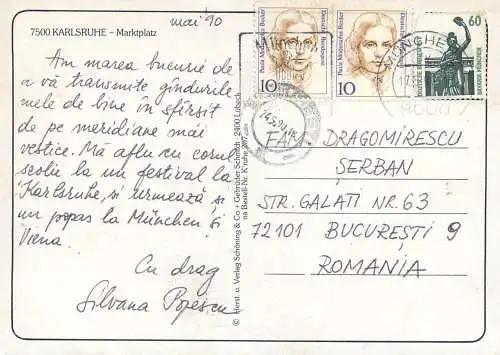 mai '90
7500 KARLSRUHE – Marktplatz
Am marea bucurie de
a vă transmite gîndurile
mele de bine în sfîrsit
de pe meridiane mai
vestice. Mă aflu cu corul
scolii la un festival la
Karlsruhe, si urmează si
un popas la München si
Viena.
Cu drag
Silvana Popescu
© Horst u. Verlag Schöning & Co · Gebrüder Schmidt · 2400 Lübeck
na Bestell-Nr. K'ruhe
Paula Modersohn-Becker
Deutsche Bundespost
10
Paula Modersohn-Becker
Deutsche Bundespost
10
60
BAVARIA MÜNCHEN
München
FAM DRAGOMIRESCU
ȘERBAN
STR. GALATI NR. 63
72101 BUCUREȘTI 9
ROMANIA